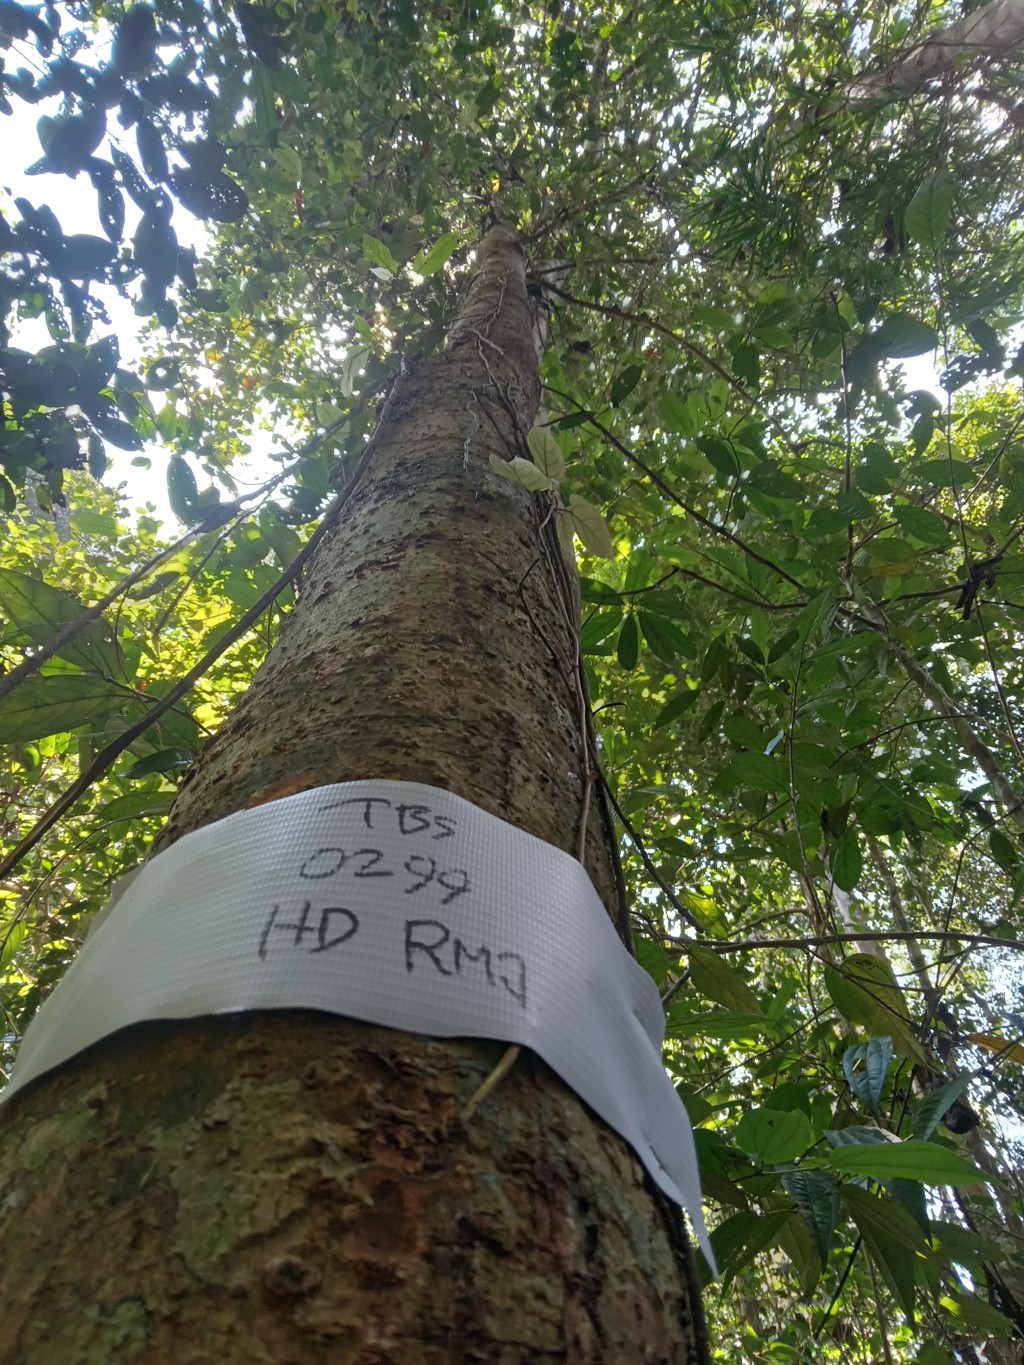 TBS
0299
HD RMJ